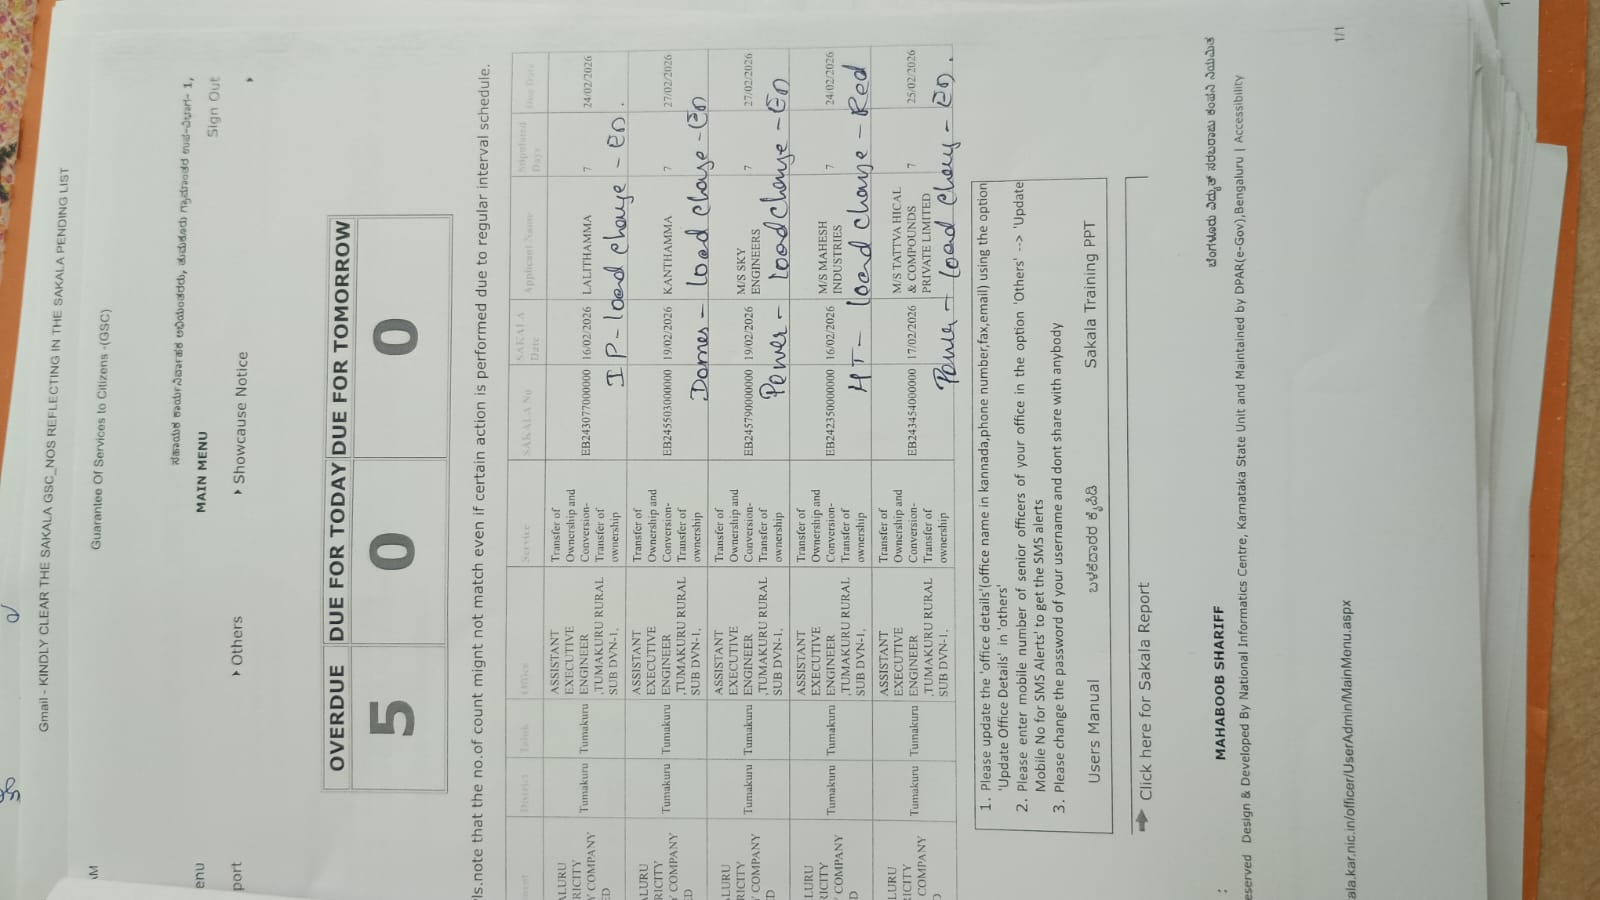 Gmail - KINDLY CLEAR THE SAKALA GSC_NOS REFLECTING IN THE SAKALA PENDING LIST
Guarantee Of Services to Citizens -(GSC)
AM
ಸಹಾಯಕ ಕಾರ್ಯನಿರ್ವಾಹಕ ಅಭಿಯಂತರರು, ತುಮಕೂರು ಗ್ರಾಮಾಂತರ ಉಪ-ವಿಭಾಗ- 1,
enu MAIN MENU Sign Out
port Others Showcause Notice
OVERDUE DUE FOR TODAY DUE FOR TOMORROW
5 0 0
Pls.note that the no.of count mignt not match even if certain action is performed due to regular interval schedule.
ment District Taluk Office Service SAKALA No SAKALA Date Applicant Name Stipulated Days Due Date
ALURU
RICITY
Y COMPANY
ED
Tumakuru Tumakuru
ASSISTANT
EXECUTIVE
ENGINEER
,TUMAKURU RURAL
SUB DVN-1,
Transfer of
Ownership and
Conversion-
Transfer of
ownership
EB24307700000000 16/02/2026 LALITHAMMA 7 24/02/2026
IP - load change - ಅಗ.
ALURU
RICITY
Y COMPANY
ED
Tumakuru Tumakuru
ASSISTANT
EXECUTIVE
ENGINEER
,TUMAKURU RURAL
SUB DVN-1,
Transfer of
Ownership and
Conversion-
Transfer of
ownership
EB24550300000000 19/02/2026 KANTHAMMA 7 27/02/2026
Domes - load change -
ALURU
RICITY
Y COMPANY
ED
Tumakuru Tumakuru
ASSISTANT
EXECUTIVE
ENGINEER
,TUMAKURU RURAL
SUB DVN-1,
Transfer of
Ownership and
Conversion-
Transfer of
ownership
EB24579000000000 19/02/2026 M/S SKY
ENGINEERS 7 27/02/2026
Power - load change -
LURU
RICITY
Y COMPANY
D
Tumakuru Tumakuru
ASSISTANT
EXECUTIVE
ENGINEER
,TUMAKURU RURAL
SUB DVN-1,
Transfer of
Ownership and
Conversion-
Transfer of
ownership
EB24235000000000 16/02/2026 M/S MAHESH
INDUSTRIES 7 24/02/2026
HT - load change - Red
LURU
RICITY
COMPANY
D
Tumakuru Tumakuru
ASSISTANT
EXECUTIVE
ENGINEER
,TUMAKURU RURAL
SUB DVN-1,
Transfer of
Ownership and
Conversion-
Transfer of
ownership
EB24345400000000 17/02/2026 M/S TATTVA HICAL
& COMPOUNDS
PRIVATE LIMITED 7 25/02/2026
Power - load chang -
1. Please update the 'office details'(office name in kannada,phone number,fax,email) using the option
'Update Office Details' in 'others'
2. Please enter mobile number of senior officers of your office in the option 'Others' --> 'Update
Mobile No for SMS Alerts' to get the SMS alerts
3. Please change the password of your username and dont share with anybody
Users Manual ಬಳಕೆದಾರರ ಕೈಪಿಡಿ Sakala Training PPT
Click here for Sakala Report
: MAHABOOB SHARIFF ಬೆಂಗಳೂರು ವಿದ್ಯುತ್ ಸರಬರಾಜು ಕಂಪನಿ ನಿಯಮಿತ
eserved Design & Developed By National Informatics Centre, Karnataka State Unit and Maintained by DPAR(e-Gov),Bengaluru | Accessibility
ala.kar.nic.in/officer/UserAdmin/MainMenu.aspx 1/1